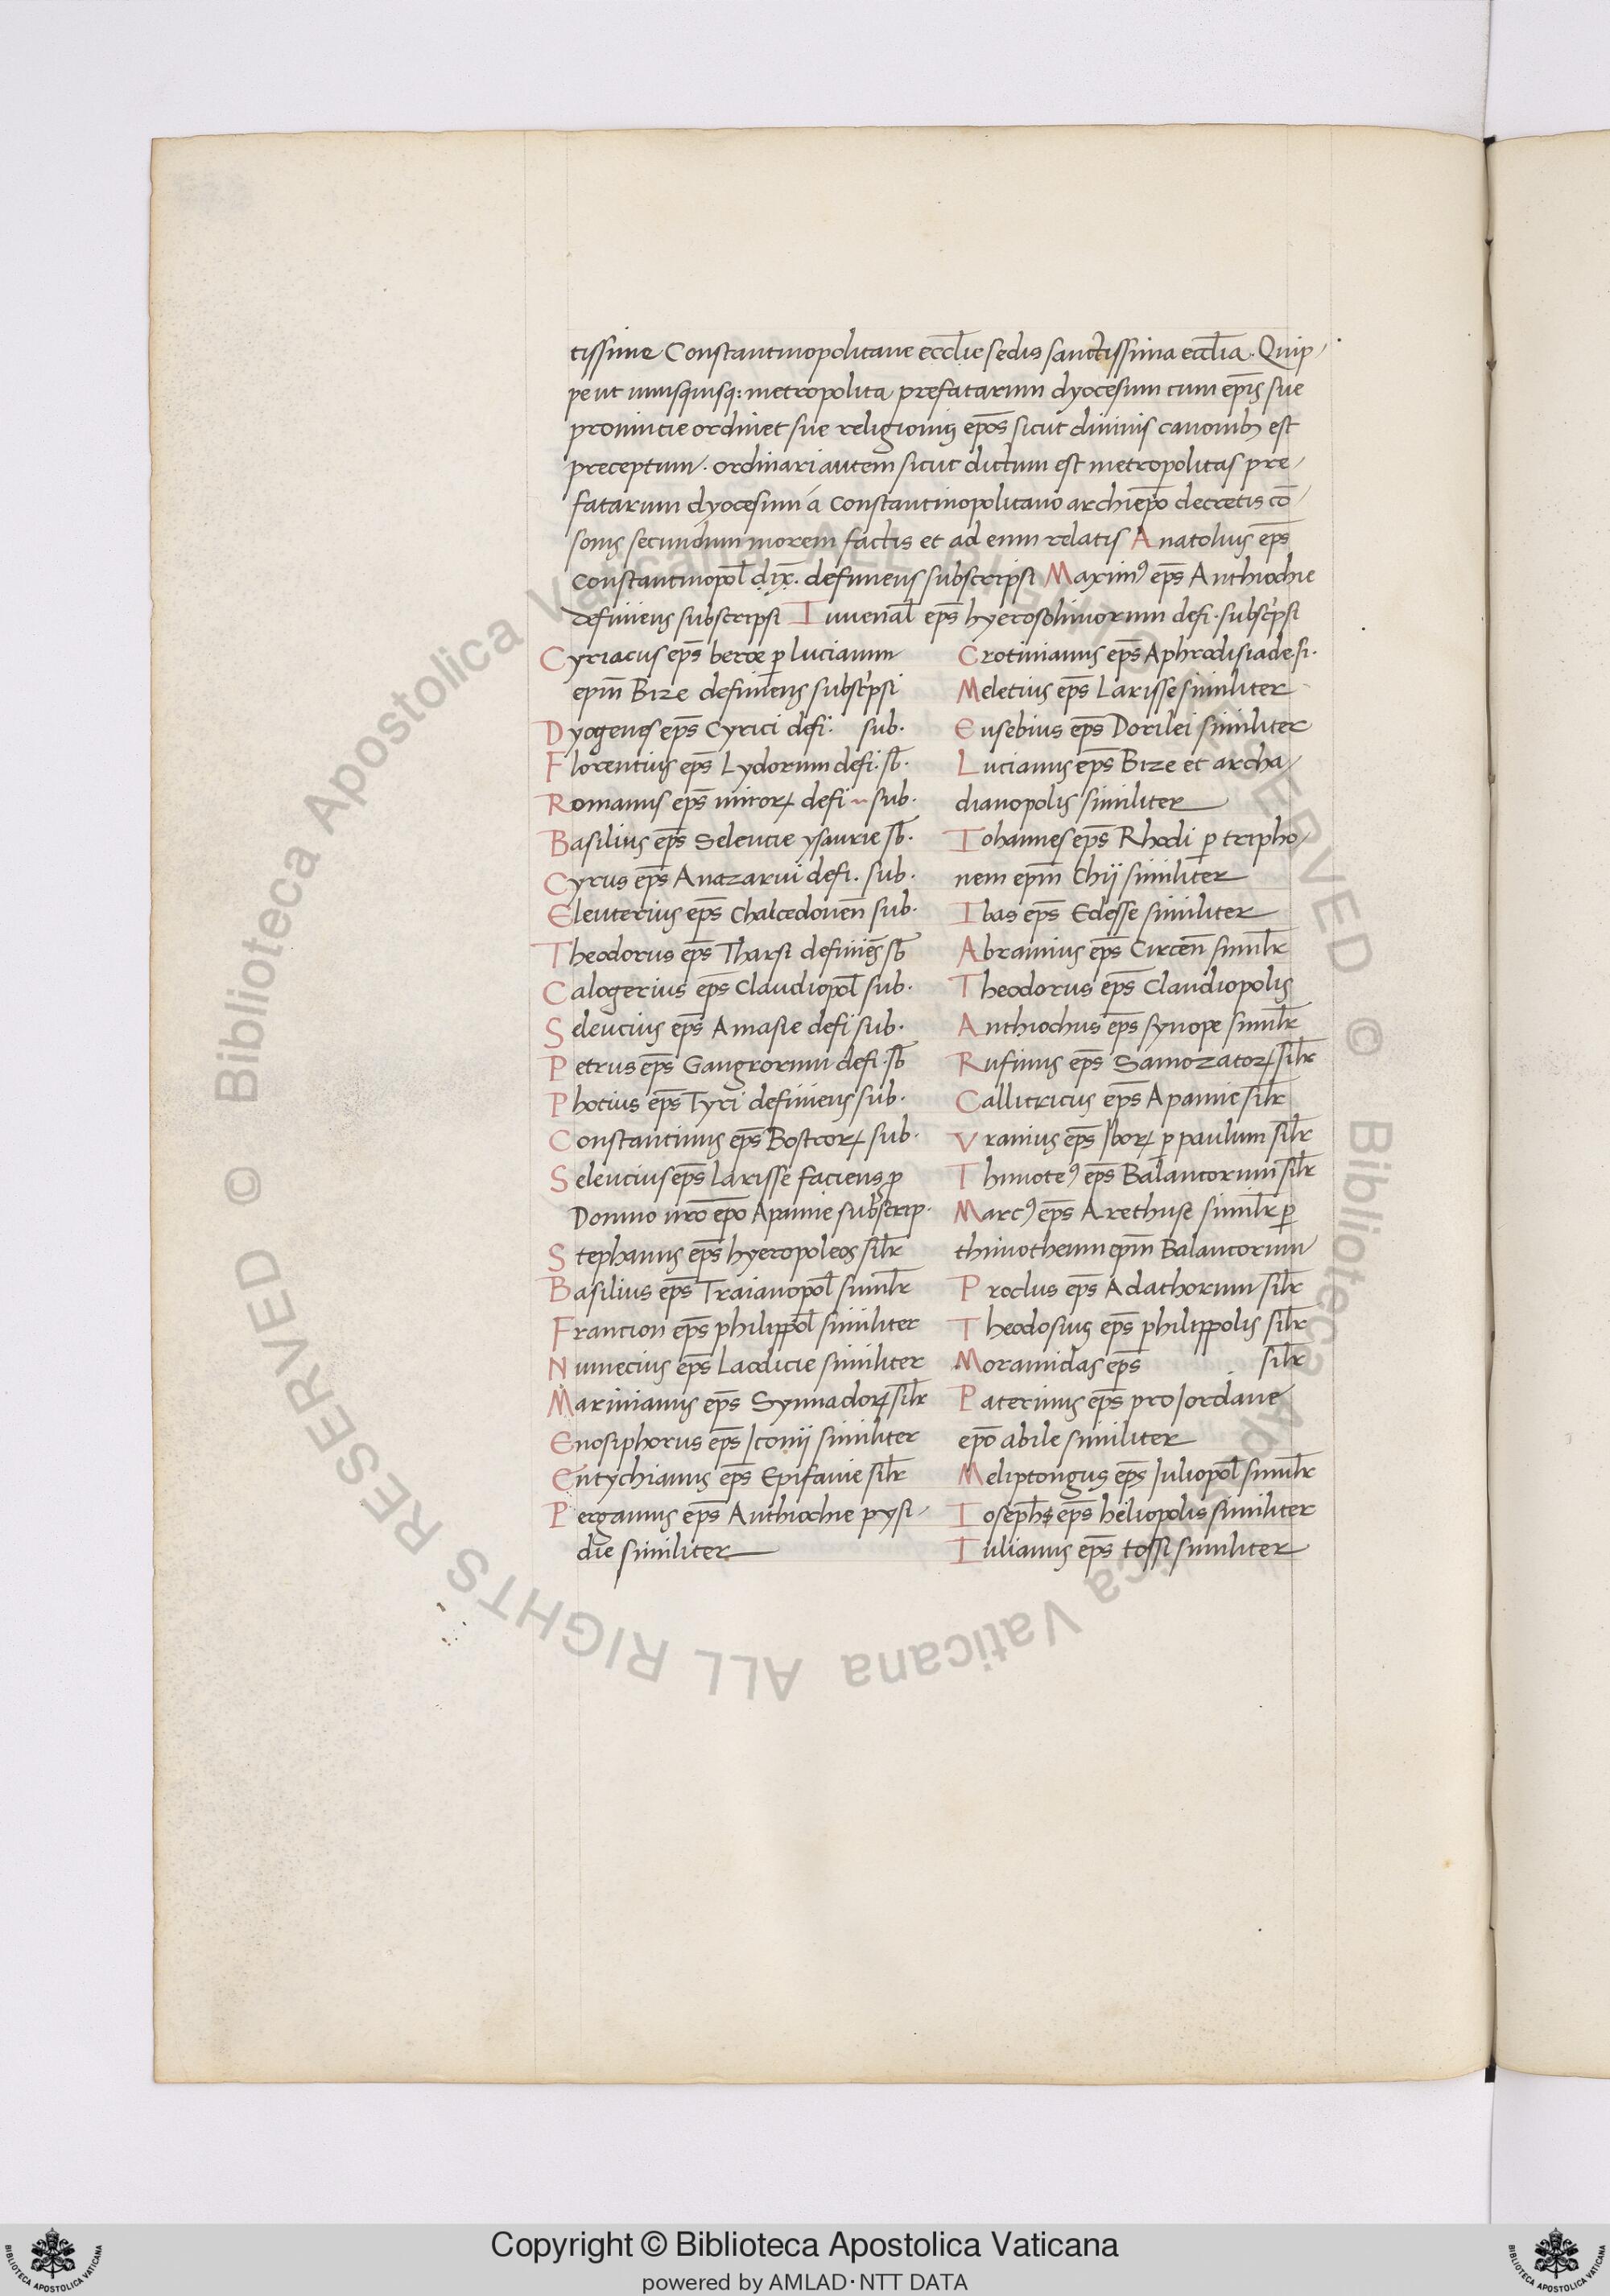 tissime Constantinopolitane eccl̄ie sedis sanctissima eccl̄ia. Quip
pe ut unusquisq: metropolita prefatarum dyocesum cum ep̄is sue
provincie ordinet sue religionis ep̄os sicut divinis canonib; est
preceptum. ordinari autem sicut dictum est metropolitas pre
fatarum dyocesum á Constantinopolitano archiep̄o decretis cō
sonis secundum morem factis et ad eum relatis Anatolius ep̄s
Constantinopol̄ dix̄. definiens subscripsi Maximꝰ ep̄s Anthiochie
definiens subscripsi Iuvenal̄ ep̄s hyerosolimorum defi. subsc̄psi
Cyriacus ep̄s beroe p̱ lucianum
ep̄m Bize definiens subsc̄psi
Dyogenes ep̄s Cyrici defi. sub.
Florentius ep̄s Lydorum defi. sb̄.
Romanus ep̄s mirorꝝ defi sub.
Basilius ep̄s Seleucie ysaurie sb̄.
Cyrus ep̄s Anazarui defi. sub.
Eleuterius ep̄s Chalcedonen̄ sub.
Theodorus ep̄s Tharsi definiēs sb̄
Calogerius ep̄s Claudiopol̄ sub.
Seleucius ep̄s Amasie defi sub.
Petrus ep̄s Gangrorum defi. sb̄
Photius ep̄s Tyri definiens sub.
Constantinus ep̄s Bostrorꝝ sub.
Seleucius ep̄s Larisse faciens ꝓ
Domno nr̄o ep̄o Apamie subscrip.
Stephanus ep̄s hyeropoleos sil̄r
Basilius ep̄s Traianopol̄ simil̄r
Francion ep̄s philippol̄ similiter
Nunecius ep̄s Laodicie similiter
Marinianus ep̄s Synnadorꝝ sil̄r
Enosiphorus ep̄s Iconii similiter
Eutychianus ep̄s Epifanie sil̄r
Pergamus ep̄s Anthiochie pysi
die similiter
Crotinianus ep̄s Aphrodisiade.si.
Meletius ep̄s Larisse similiter
Eusebius ep̄s Dorilei similiter
Lucianus ep̄s Bize et archa
dianopolis similiter
Iohannes ep̄s Rhodi p̱ tripho
nem ep̄m Chij similiter
Ibas ep̄s Edesse similiter
Abramius ep̄s Circen̄ simil̄r
Theodorus ep̄s Claudiopolis
Anthiochus ep̄s synope simil̄r
Rufinus ep̄s Samozatorꝝ sil̄r
Callitricus ep̄s Apamie sil̄r
Vranius ep̄s Iborꝝ p̱ paulum sil̄r
Thimoteꝰ ep̄s Balancorum sil̄r
Marcꝰ ep̄s Arethuse simil̄r p̱
thimotheum ep̄m Balancorum
Proclus ep̄s Adathorum sil̄r
Theodosius ep̄s philippolis sil̄r
Moramidas ep̄s sil̄r
Paterinus ep̄s pro Iordane
ep̄o abile similiter
Meliptongus ep̄s Iuliopol̄ simil̄r
Iosephs ep̄s heliopolis similiter
Iulianus ep̄s tossi similiter
© Biblioteca Apostolica Vaticana ALL RIGHTS RESERVED
Copyright © Biblioteca Apostolica Vaticana
powered by AMLAD·NTT DATA
BIBLIOTECA APOSTOLICA VATICANA
BIBLIOTECA APOSTOLICA VATICANA